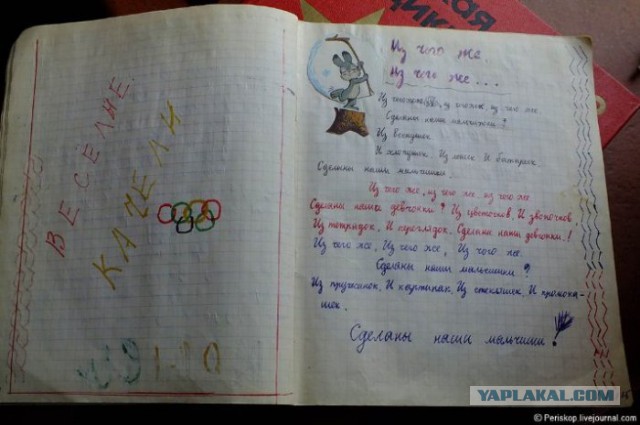 ВЕСЁЛЫЕ
КАЧЕЛИ
Из чего же,
Из чего же...
из чего же
Сделаны наши мальчишки?
Из веснушек
И хлопушек, Из линеек И батареек
Сделаны наши мальчишки
Из чего же, из чего же, из чего же
Сделаны наши девчонки? Из цветочков, И звоночков
Из тетрадок, И переглядок. Сделаны наши девчонки!
Из чего же, Из чего же, Из чего же
Сделаны наши мальчишки?
Из пружинок, И картинок, Из стекляшек, И промока-
шек.
Сделаны наши мальчишки!
YAPLAKAL.COM
© Periskop.livejournal.com